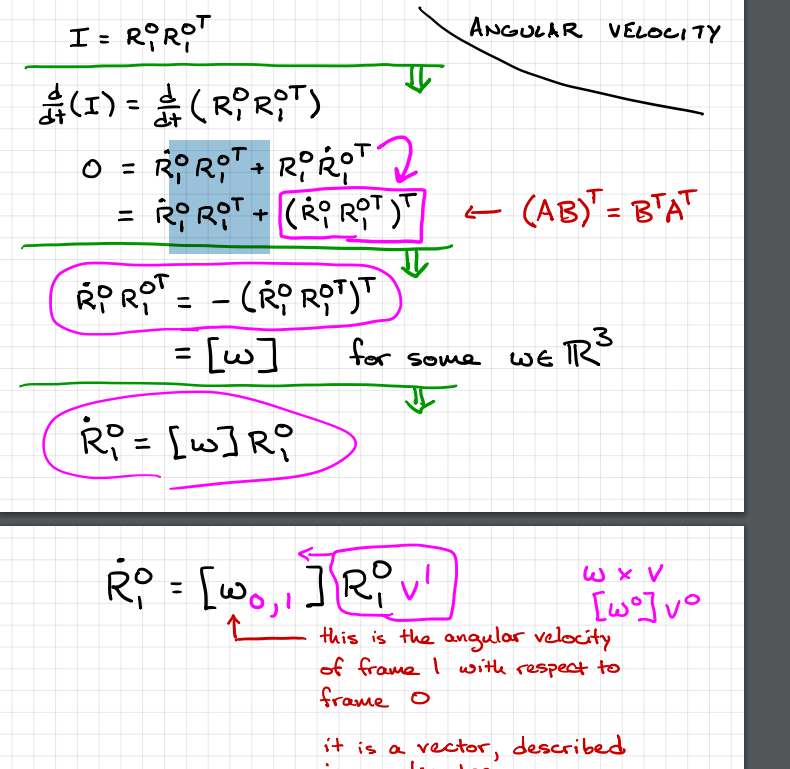 ANGULAR VELOCITY
I = R₁⁰R₁⁰ᵀ
d/dt(I) = d/dt(R₁⁰R₁⁰ᵀ)
0 = Ṙ₁⁰R₁⁰ᵀ + R₁⁰Ṙ₁⁰ᵀ
= Ṙ₁⁰R₁⁰ᵀ + (Ṙ₁⁰R₁⁰ᵀ)ᵀ ← (AB)ᵀ = BᵀAᵀ
Ṙ₁⁰R₁⁰ᵀ = -(Ṙ₁⁰R₁⁰ᵀ)ᵀ
= [ω] for some ω∈ℝ³
Ṙ₁⁰ = [ω]R₁⁰
Ṙ₁⁰ = [ω₀,₁]R₁⁰v¹
ω × v
[ω⁰]v⁰
this is the angular velocity
of frame 1 with respect to
frame 0
it is a vector, described